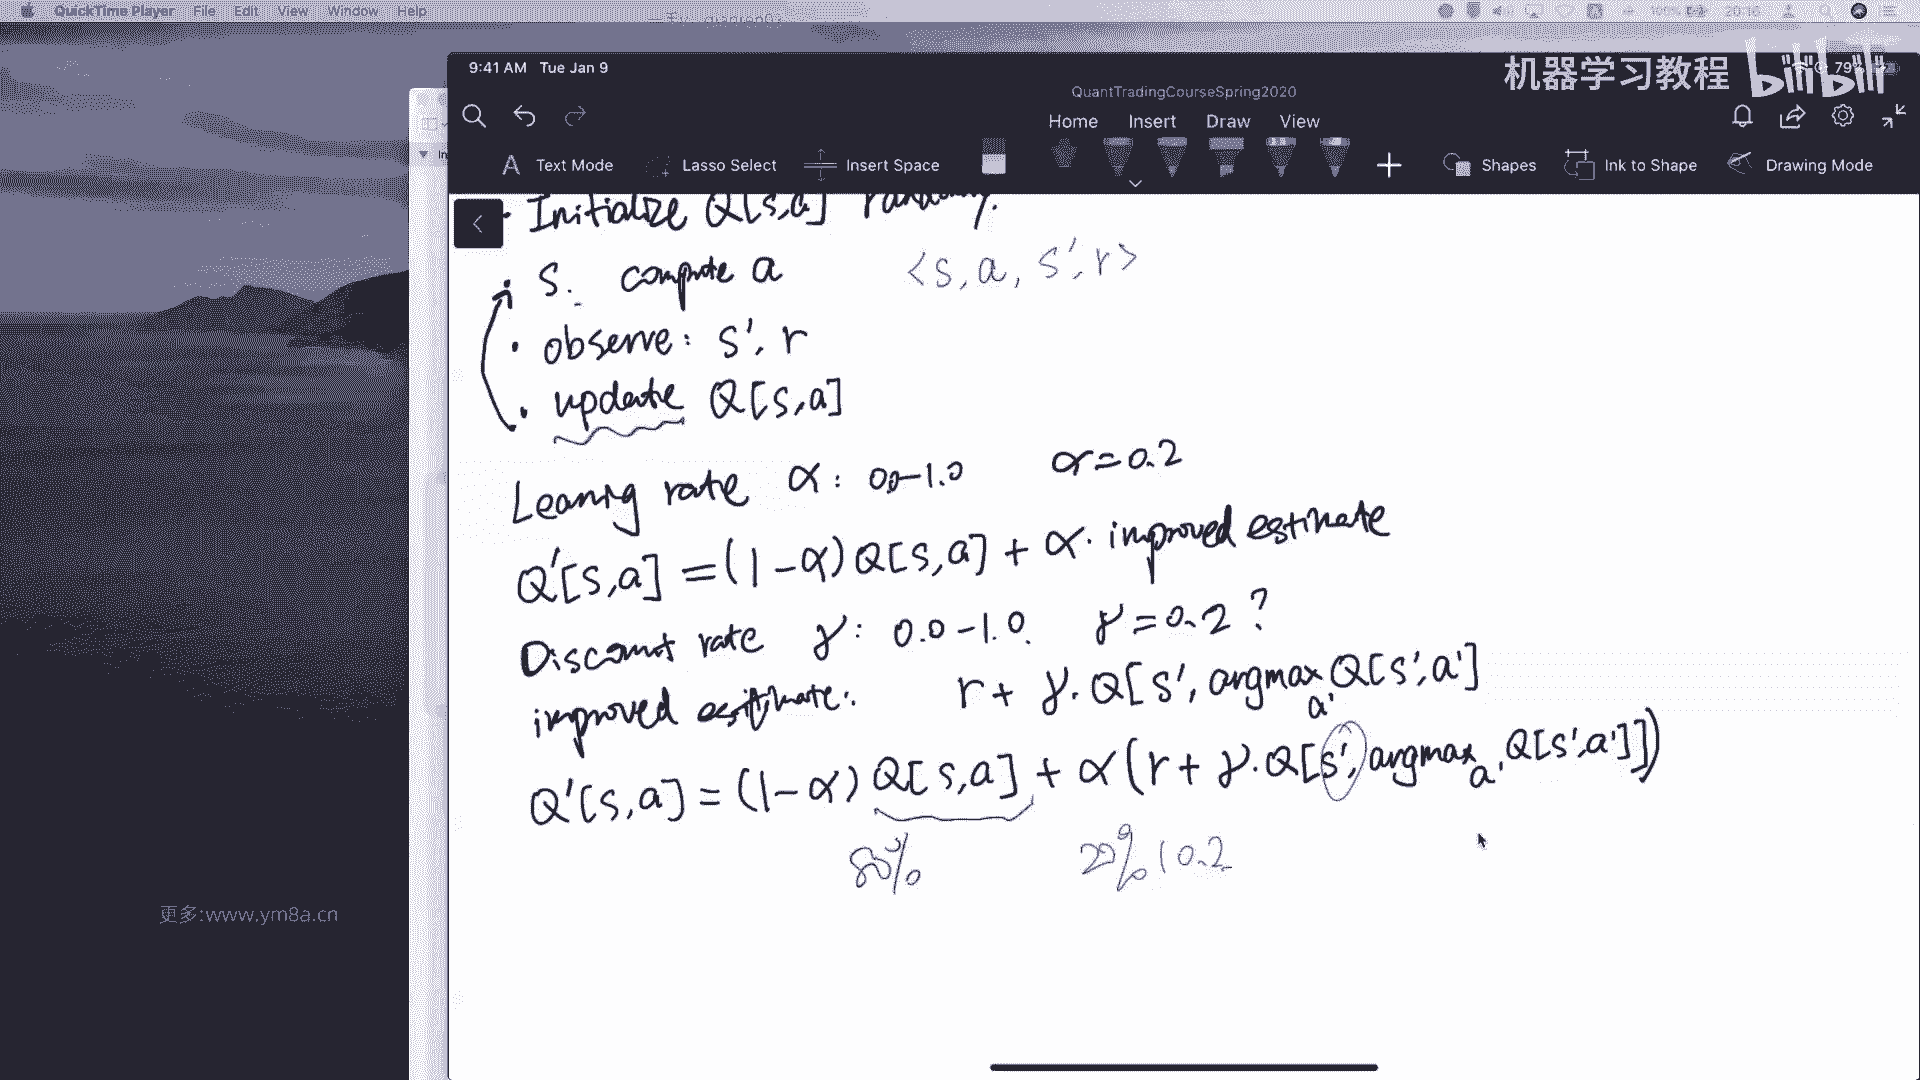 QuickTime Player File Edit View Window Help 100% 20:16
9:41 AM Tue Jan 9 79%
机器学习教程 bilibili
QuantTradingCourseSpring2020
Home Insert Draw View
A Text Mode Lasso Select Insert Space Shapes Ink to Shape Drawing Mode
· Initialize Q[s,a]
· S. compute a <s,a, s',r>
· observe: s', r
· update Q[s,a]
Learning rate α: 0.0-1.0 α=0.2
Q'[s,a] = (1-α) Q[s,a] + α· improved estimate
Discount rate γ: 0.0-1.0. γ=0.2?
improved estimate: r + γ·Q[s', argmax_a' Q[s',a']
Q'[s,a] = (1-α) Q[s,a] + α(r + γ·Q[s', argmax_a' Q[s',a']])
80% 20% 0.2
更多:www.ym8a.cn